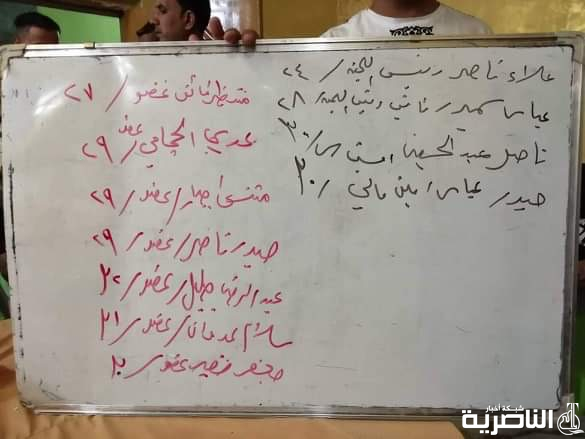 علاء ناصر رئيس اللجنة / ٢٤
عباس سمير / نائب رئيس اللجنة / ٢٨
ناصر عبد الحسين امين سر / ٣٠
حيدر عباس امين مالي / ٣٠
منتظر فائق عضو / ٢٧
عدي الحجامي / عضو / ٢٩
جبار / عضو / ٢٩
حيدر ناصر / عضو / ٢٩
عبد الرضا جليل / عضو / ٢٠
سلام عدنان / عضو / ٢١
خضير عضو / ٢٠
شبكة أخبار
الناصرية